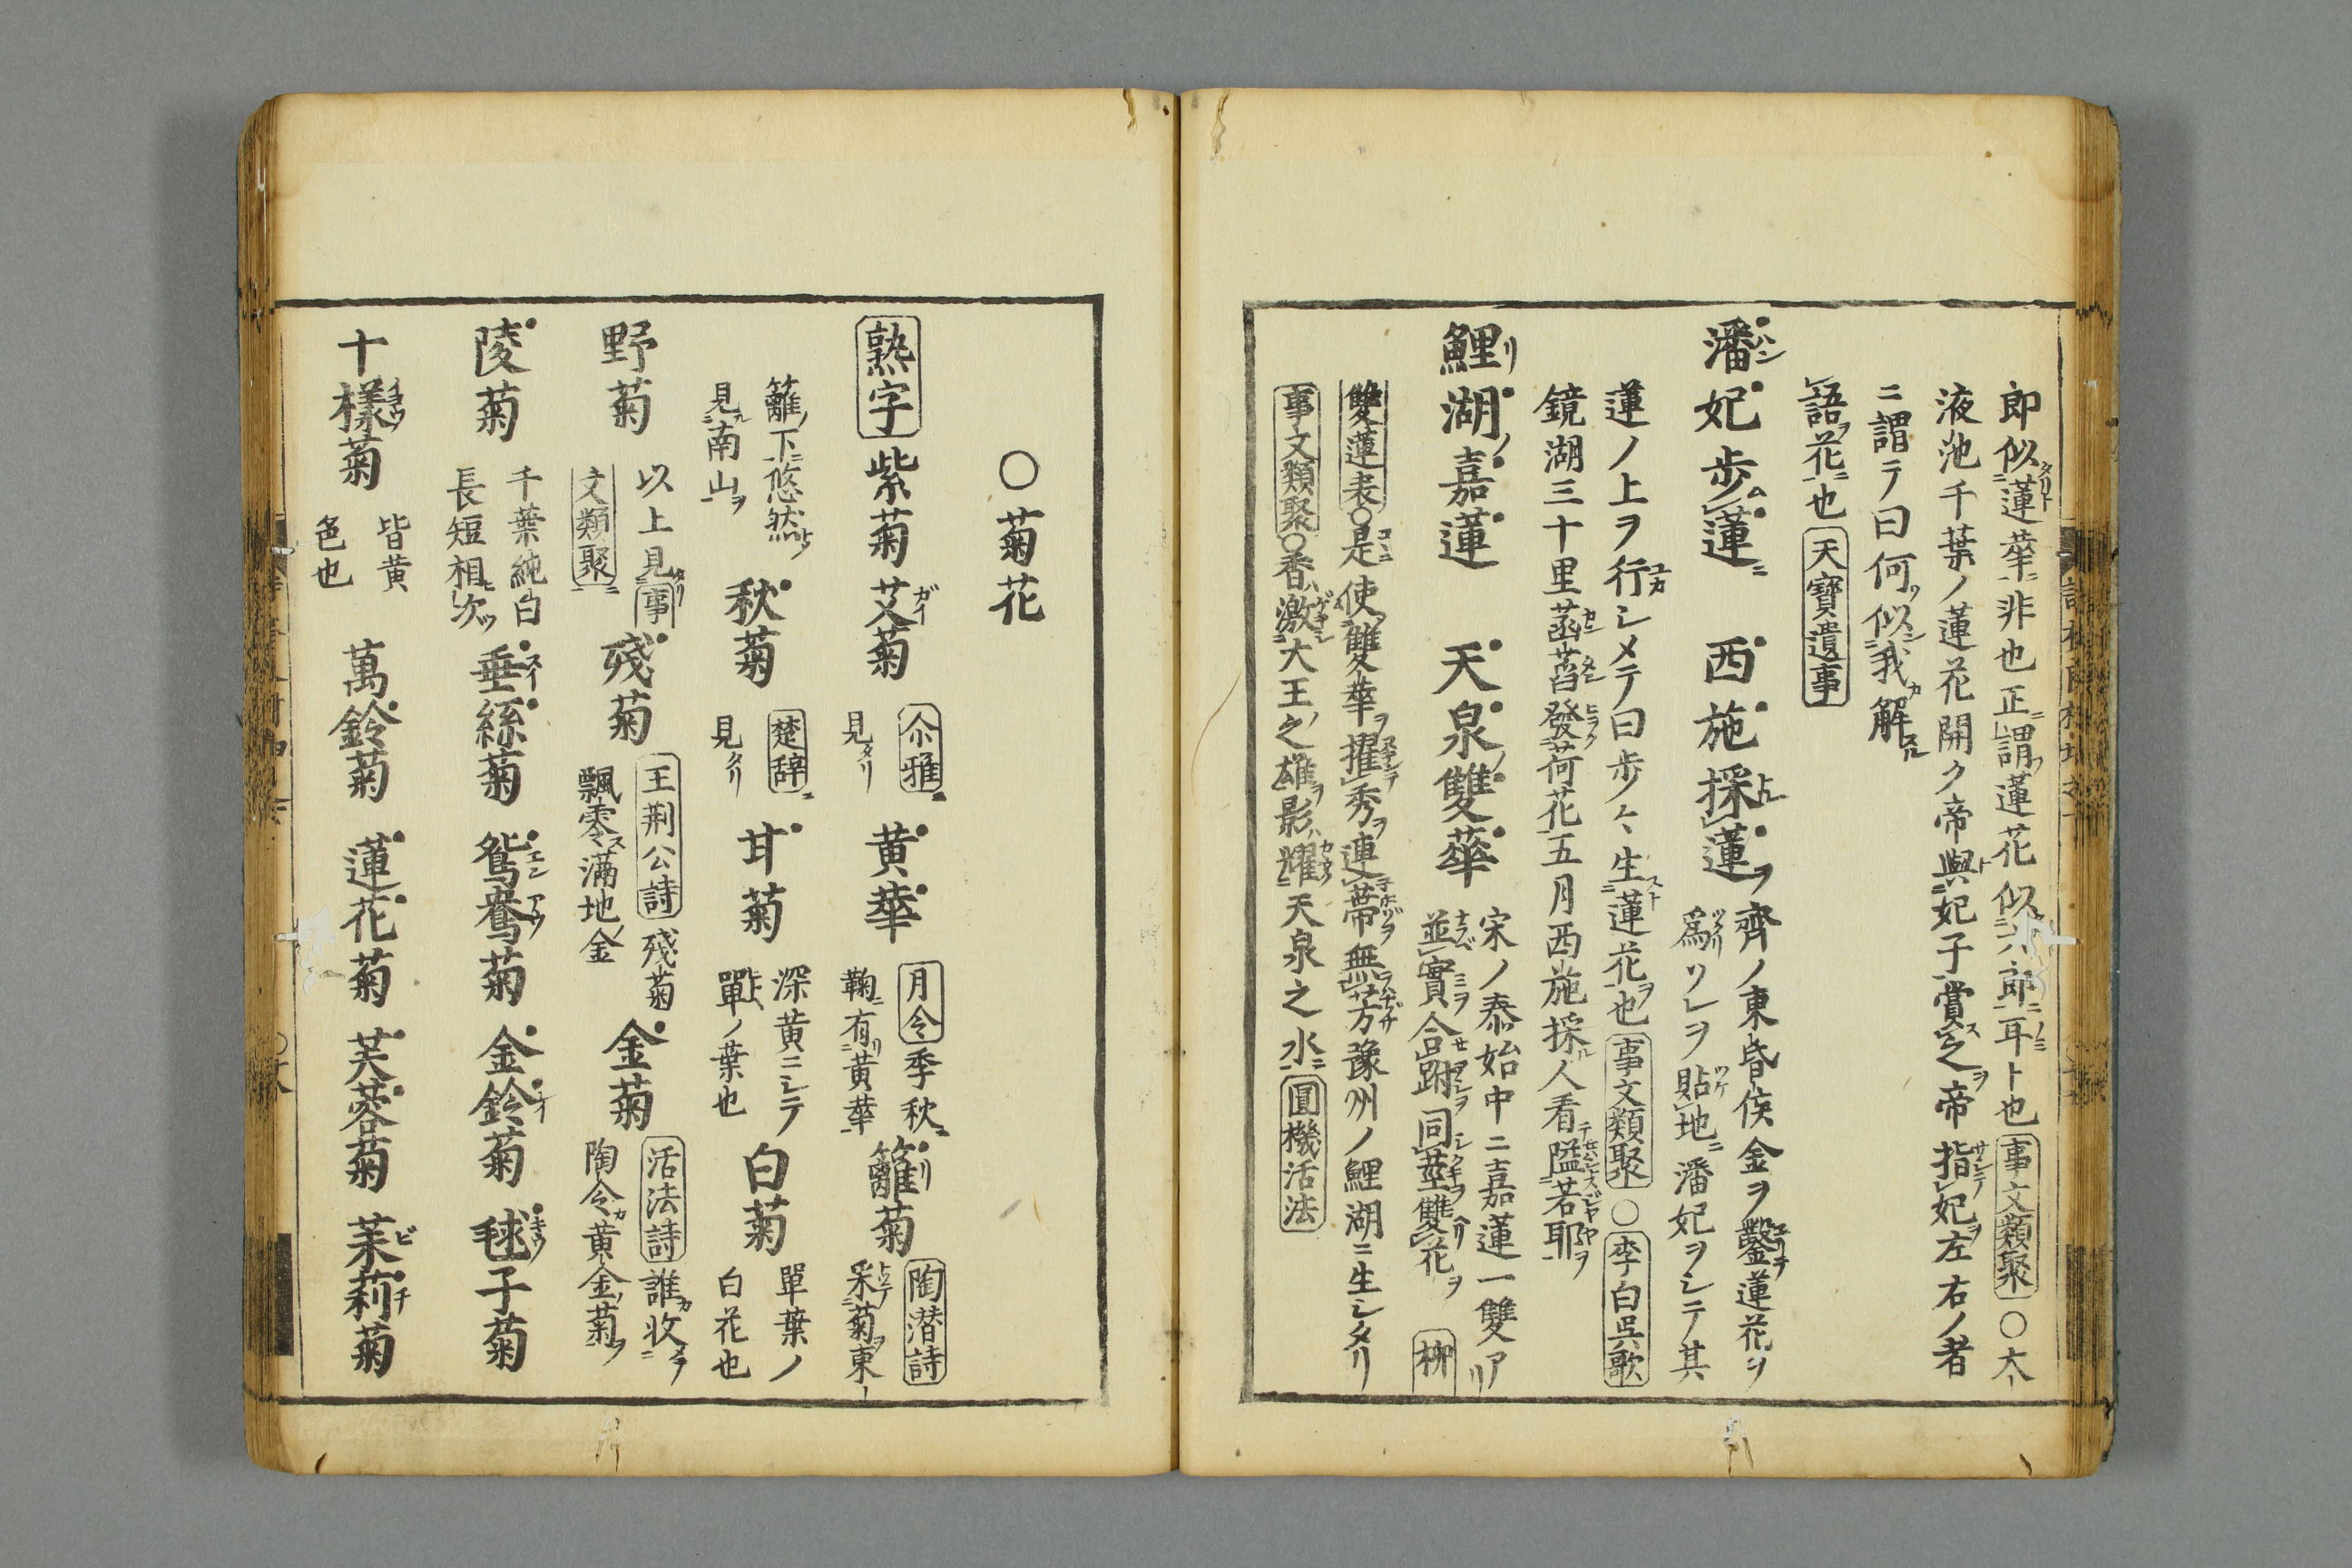 郎似蓮華非也正謂蓮花似六郎耳ト也事文類聚○太
液池千葉ノ蓮花開ク帝與妃子賞之帝指妃左右ノ者
ニ謂テ曰何似我解
語花也天寶遺事
潘妃歩蓮 西施採蓮 齊ノ東昏侯金ヲ鑿蓮花ヲ
爲リレヲ貼地潘妃ヲシテ其
蓮ノ上ヲ行シメテ曰歩々生蓮花也事文類聚○李白呉歌
鏡湖三十里菡萏發荷花五月西施採人看隘若耶
鯉湖嘉蓮 天泉雙華 宋ノ泰始中ニ嘉蓮一雙アリ
並實合跗同莖雙花 柳
雙蓮表○是使雙華擢秀連蔕無芳豫州ノ鯉湖ニ生シタリ
事文類聚○香激大王之雄影燿天泉之水圓機活法
○菊花
熟字 紫菊 艾菊 尒雅
見タリ 黄華 月令季秋
鞠有黄華 籬菊 陶潜詩
采菊東
籬下悠然
見南山 秋菊 楚辞
見タリ 甘菊 深黄ニシテ
單ノ葉也 白菊 單葉ノ
白花也
野菊 以上見事
文類聚 殘菊 王荆公詩殘菊
飄零滿地金 金菊 活法詩誰收
陶令黄金菊
陵菊 千葉純白
長短相次 垂絲菊 鴛鴦菊 金鈴菊 毬子菊
十樣菊 皆黄
色也 萬鈴菊 蓮花菊 芙蓉菊 茉莉菊